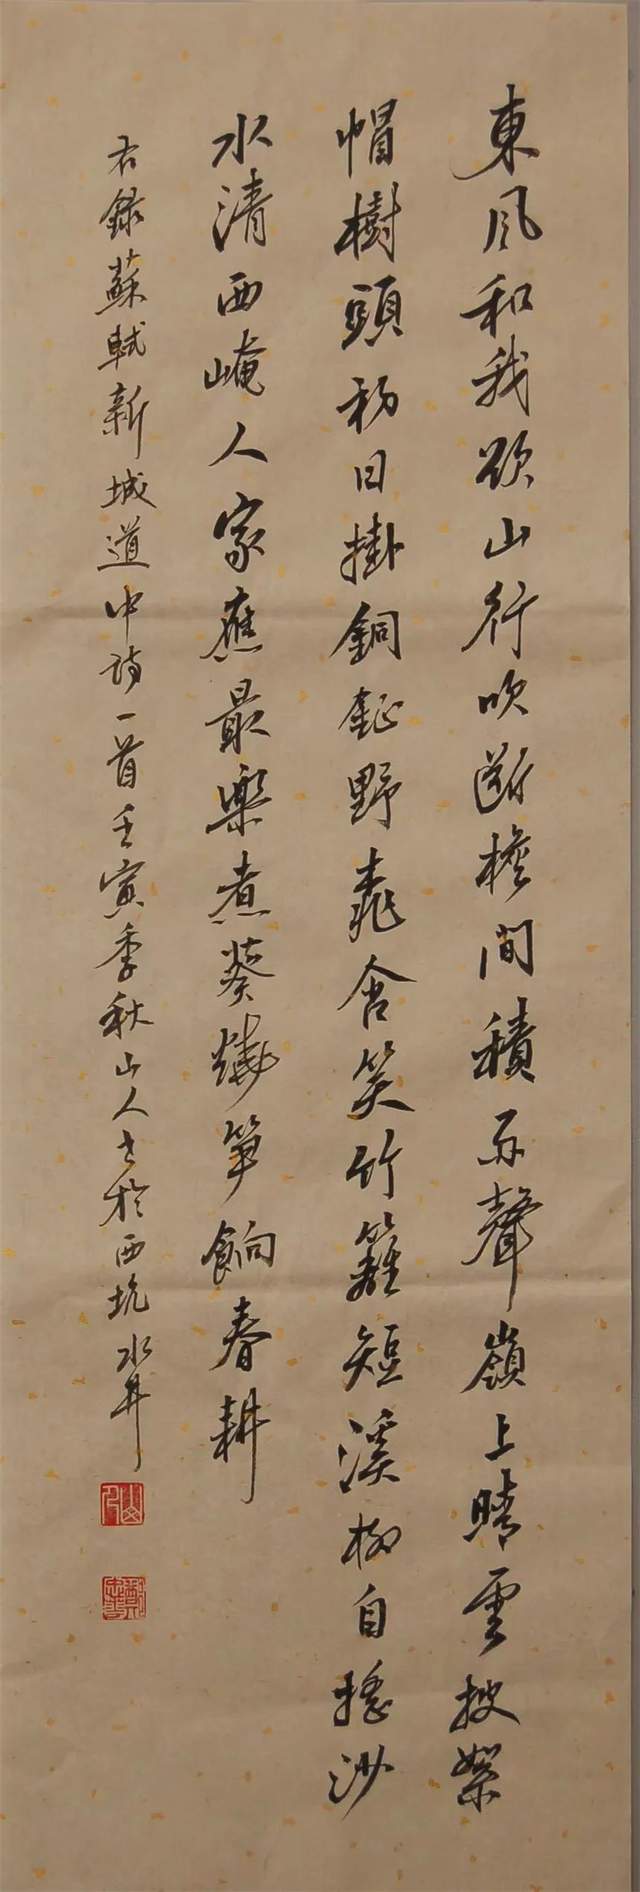 東風知我欲山行吹斷檐間積雨聲嶺上晴雲披絮
帽樹頭初日掛銅鉦野桃含笑竹籬短溪柳自搖沙
水清西崦人家應最樂煮葵燒筍餉春耕
右錄蘇軾新城道中詩一首壬寅季秋山人書於西坑水井